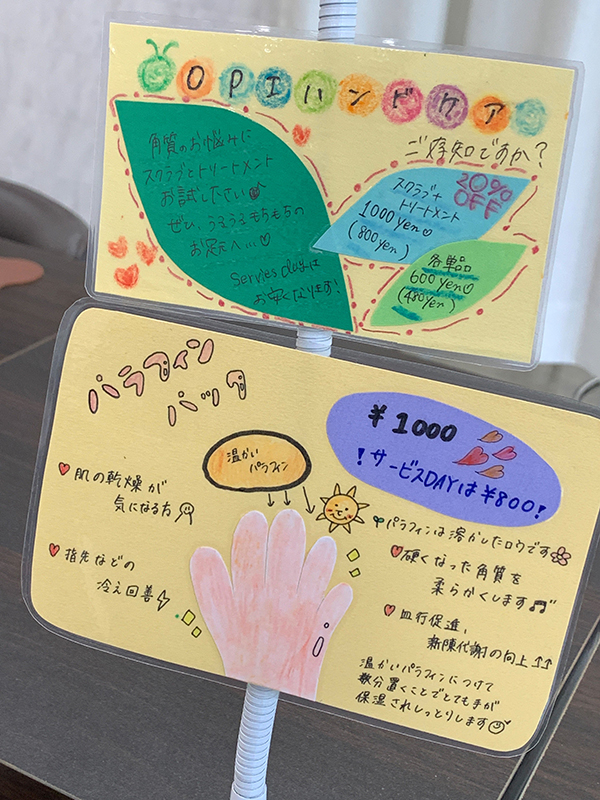 OPIハンドケア
ご存知ですか?
角質のお悩みに
スクラブとトリートメント
お試しください
ぜひ、うるうるもちもちの
お足元へ...♡
Servies dayは
お安くなります!
スクラブ+
トリートメント
1000yen♡
(800yen)
20%
OFF
各単品
600yen♡
(480yen)
パラフィン
パック
¥1000
!サービスDAYは¥800!
温かい
パラフィン
♥肌の乾燥が
気になる方
♥指先などの
冷え回善
パラフィンは溶かしたロウです
♥硬くなった角質を
柔らかくします♫
♥血行促進、
新陳代謝の向上↑↑
温かいパラフィンにつけて
数分置くことでとても手が
保湿されしっとりします